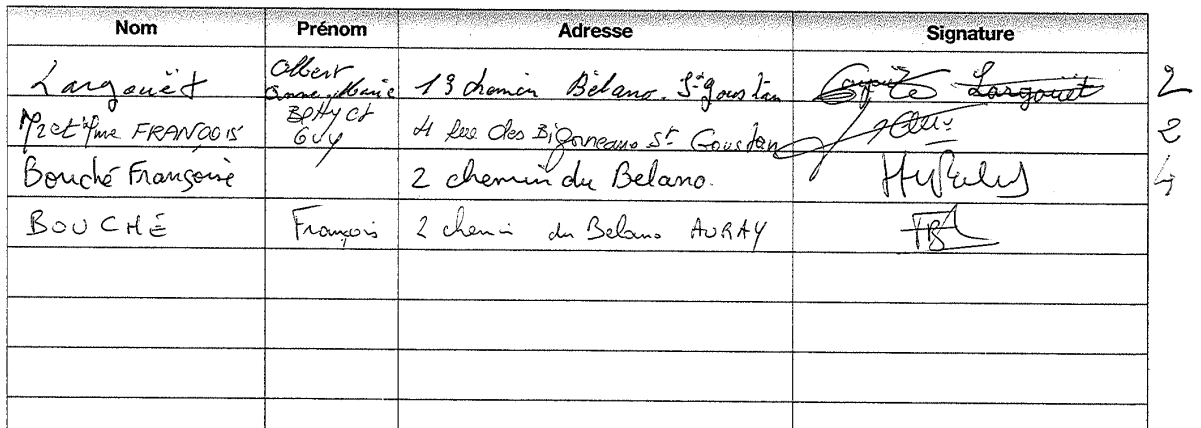 Nom Prénom Adresse Signature
Largouët Albert Anne Marie 19 chemin Bélano. St goustan Largouët 2
Mr et Mme FRANÇOIS GUY 4 rue des Bigorneaux St Goustan 2
Bouché Françoise 2 chemin du Belano. 4
BOUCHÉ François 2 chemin du Belano AURAY FB